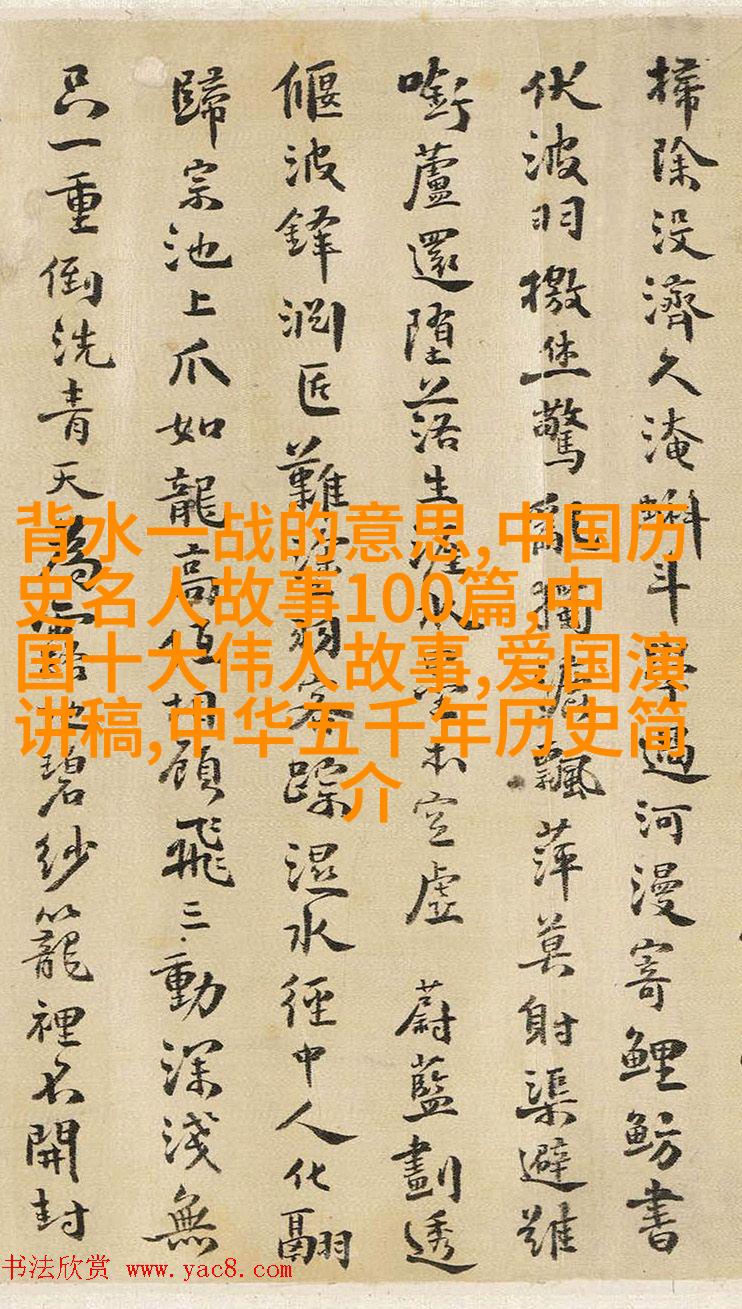 掃除没濟久淹蝌斗過河漫寄鯉魴書
伏波羽檄無驚亂獨飄萍莫射渠避難
啣蘆還墮落生涯水空虛 蔚藍劃透
偃波鋒潤匠難羽客蹤濕水徑中人化翮
歸宗池上爪如龍高低相顧飛三動深淺無
只一重倒洗青天為霧地碧紗籠裡不開封
背水一战的意思,中国历
史名人故事100篇,中
国十大伟人故事,爱国演
讲稿,中华五千年历史简
介
书法欣赏 www.yac8.com